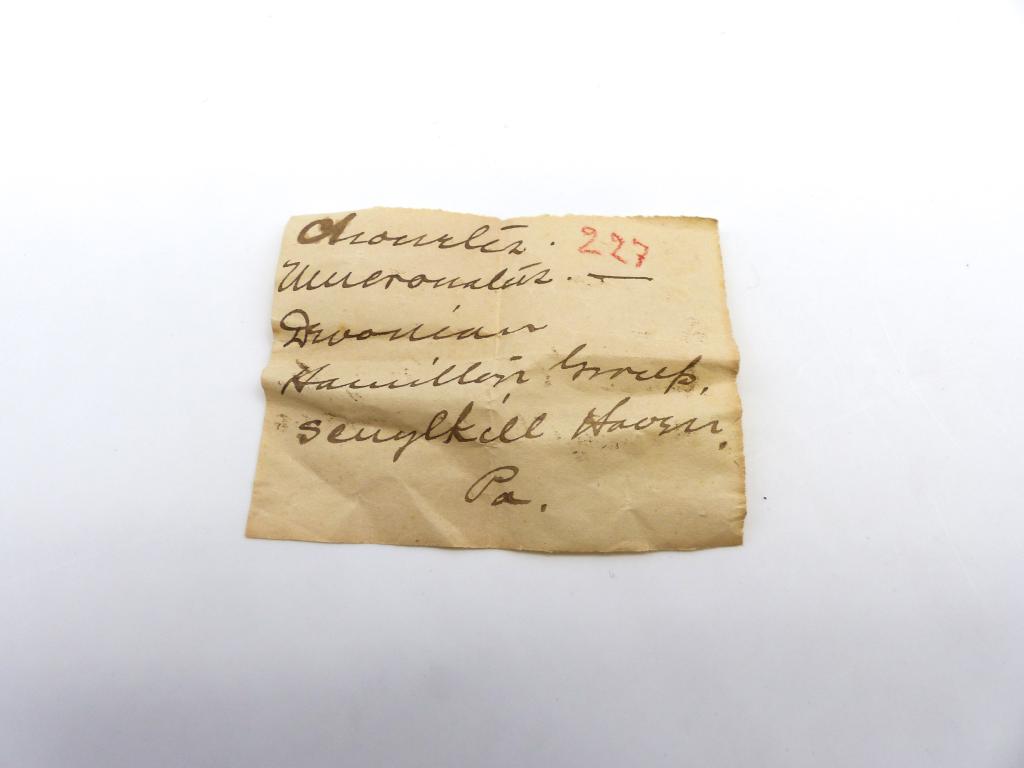 Chonetes. 227
Mucronatus. —
Devonian
Hamilton Group,
Scuylkill Haven,
Pa.